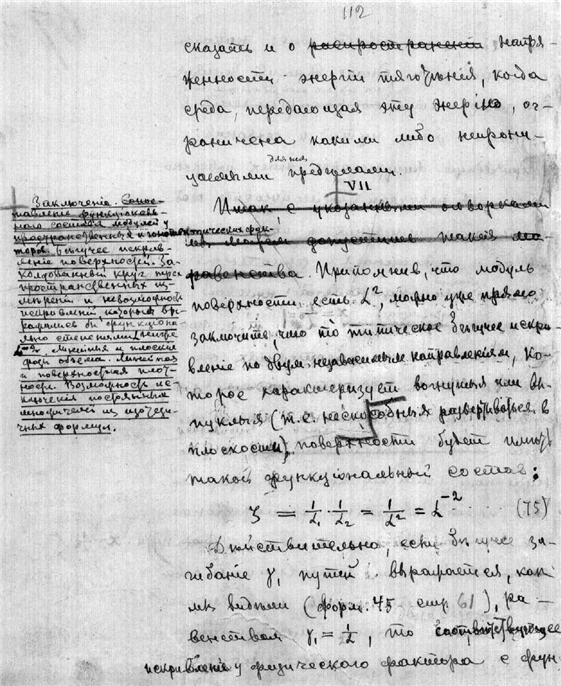 112
сказать и о распространеніи напря-
женности энергіи тяготѣнія, когда
среда, передающая эту энергію, ог-
раничена какими либо непрони-
цаемыми для нея предѣлами.
VII
Итакъ, с указанными оговорками
мы можемъ допустить такія
равенства Припомнив, что модуль
поверхности есть L², можно уже прямо
заключить, что то типическое бѣгучее искри-
вленіе по двум независимым направленіям, ко-
торое характеризует вогнутыя или вы-
пуклыя (т.е. неспособныя развертываться в
плоскости) поверхности будет имѣть
такой функціональный состав:
ζ = 1/L₁ · 1/L₂ = 1/L² = L⁻² (75)
Дѣйствительно, если бѣгучее за-
гибаніе γ₁ путей выражается, как
мы видѣли (форм. 45 стр 61), ра-
венством γ₁ = 1/L, то соотвѣтствующее
искривленіе у физического фактора с фун-
Заключеніе. Сопос-
тавленіе функціональ-
наго состава модулей
пространственных и
торов. Бѣгучее искрив-
леніе поверхностей. За-
колдованный круг трех
пространственных из-
мѣреній и невозможность
искривленій которыя вы-
ражались бы функціона-
льно степенями ниже
L⁻². Линейныя и плоскія
фазы объема. Линейная
и поверхностная плот-
ность. Возможность ис-
ключенія постоянных
множителей из
чных формул.